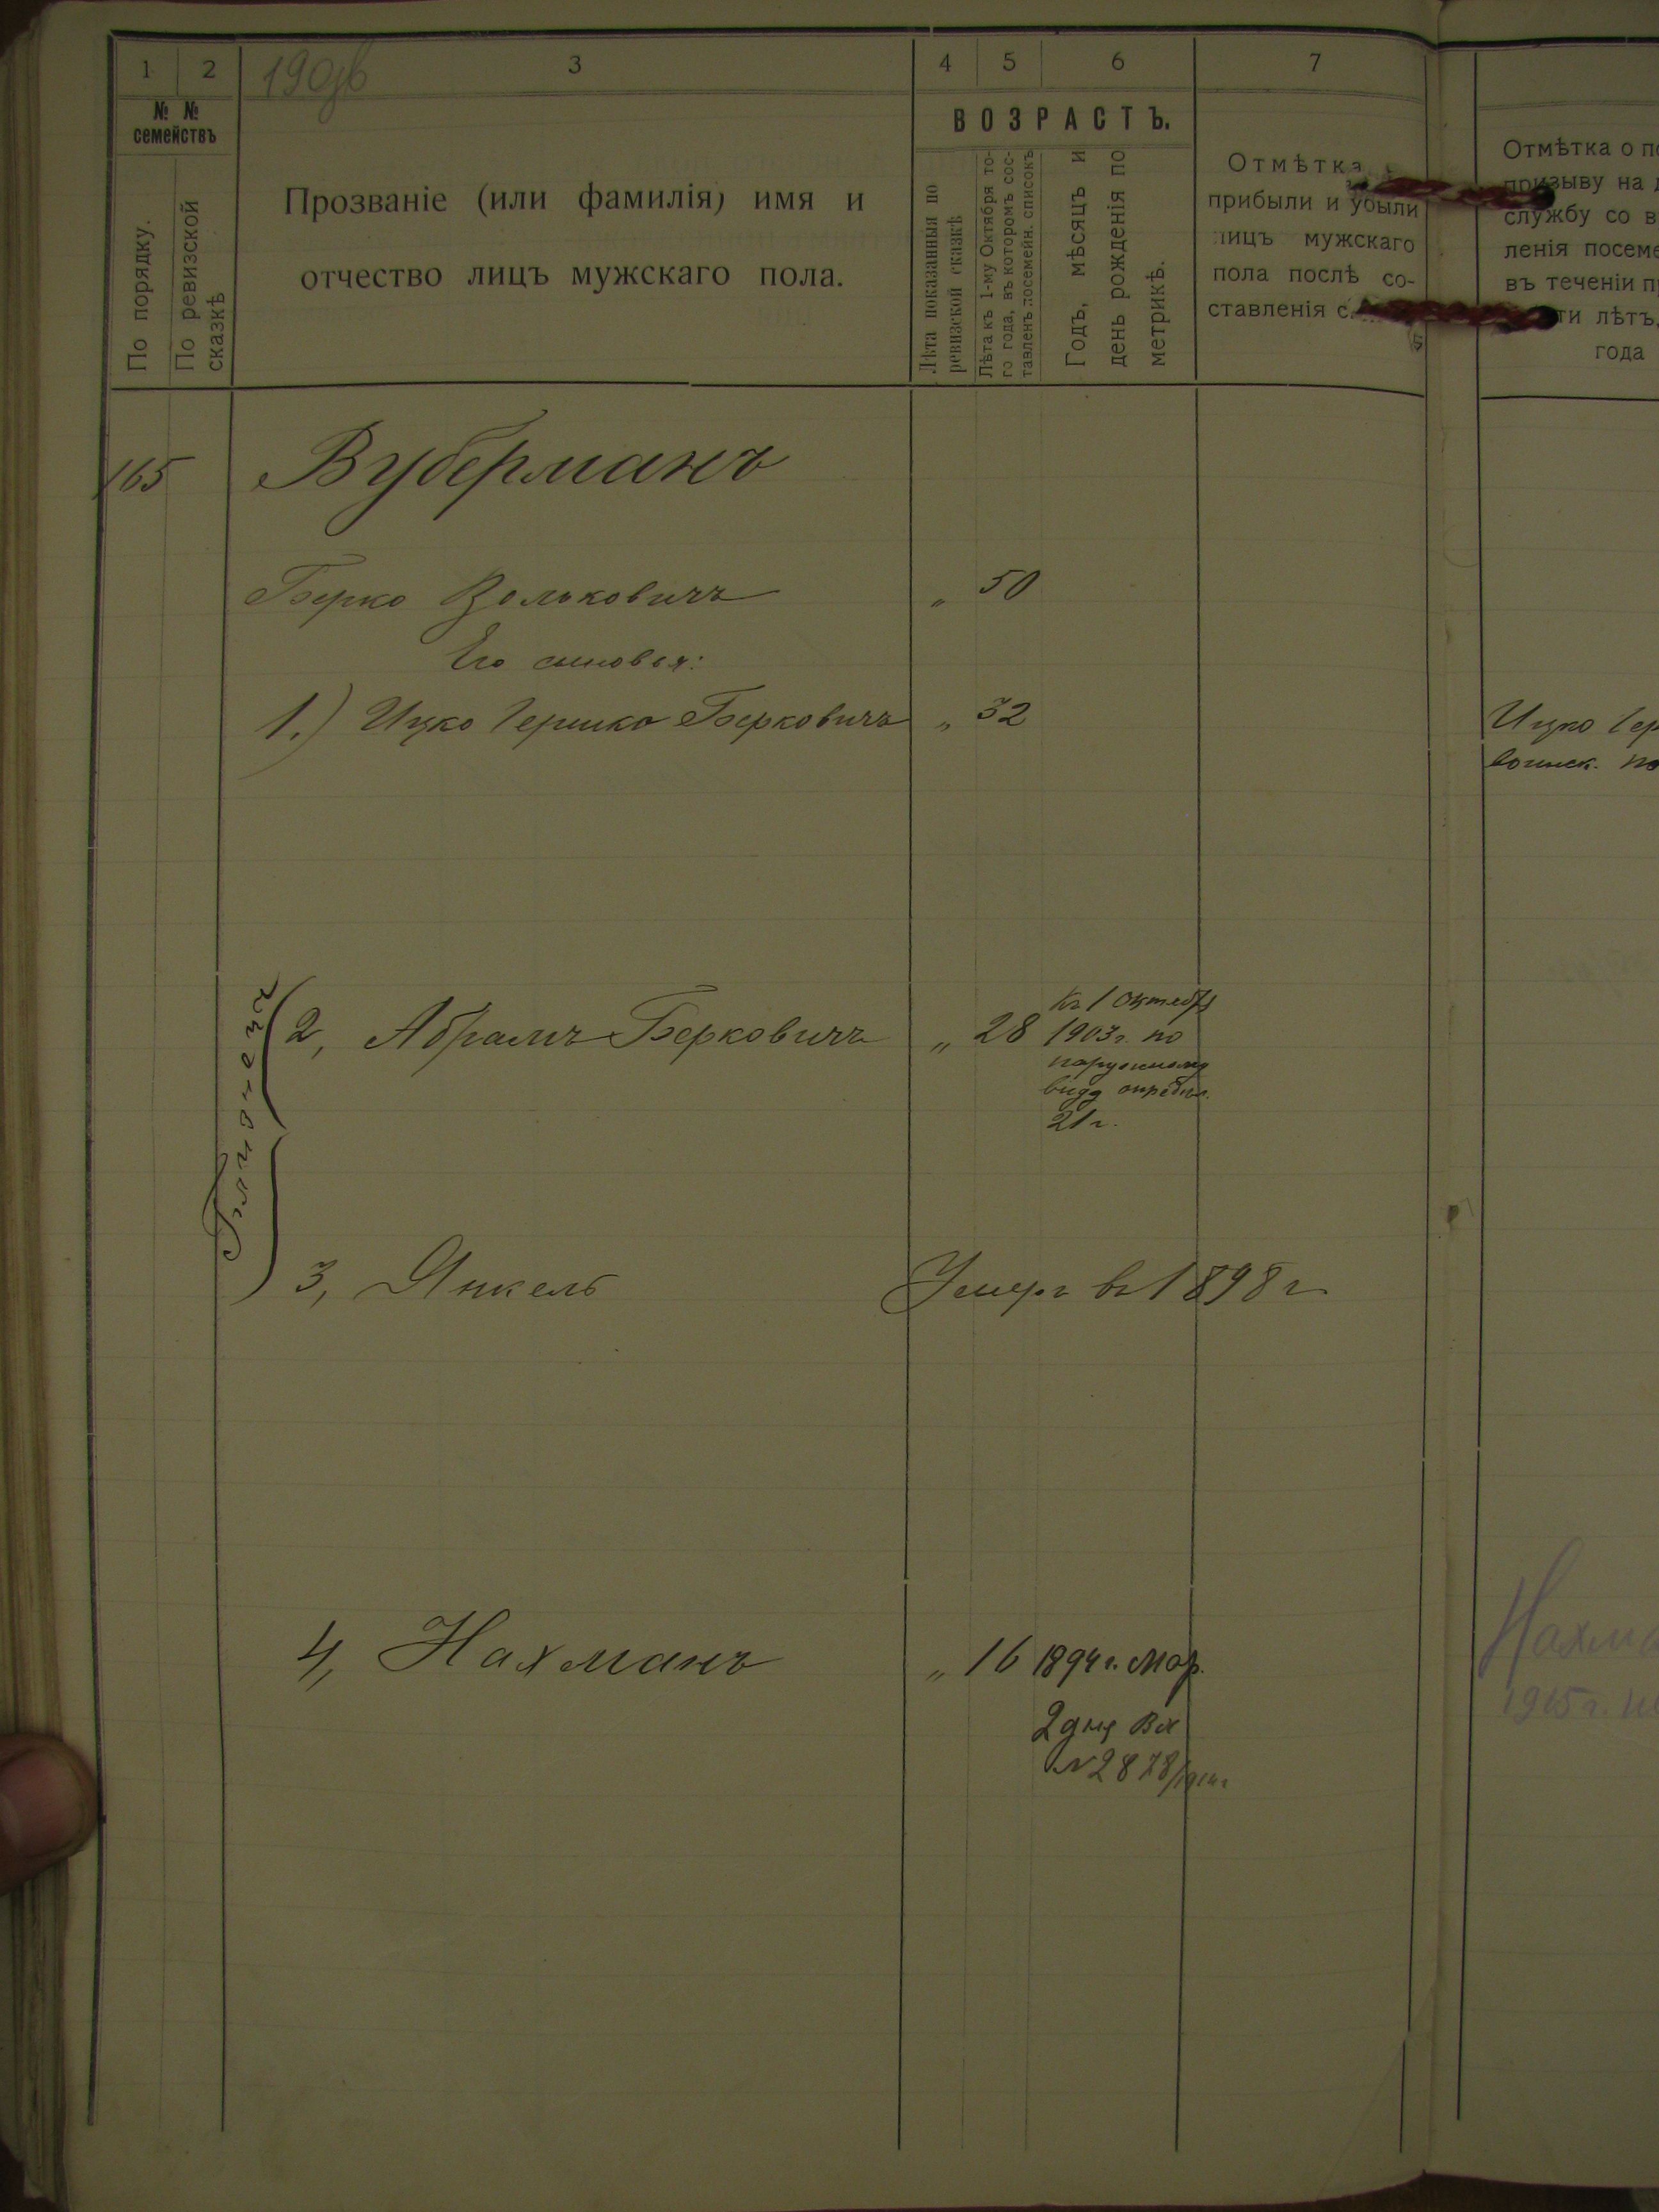 1 2 3 4 5 6 7
№ №
семействъ
По порядку.
По ревизской
сказкѣ
Прозваніе (или фамилія) имя и
отчество лицъ мужскаго пола.
ВОЗРАСТЪ.
Лѣта показанныя по
ревизской сказкѣ
Лѣта къ 1-му Октября то-
го года, въ которомъ сос-
тавленъ посемейн. списокъ
Годъ, мѣсяцъ и
день рожденія по
метрикѣ.
Отмѣтка
прибыли и убыли
лицъ мужскаго
пола послѣ со-
ставленія с
Отмѣтка о п
призыву на
службу со в
ленія посеме
въ теченіи п
ти лѣтъ,
года
165 Вуберманъ
Берко Вольковичъ „ 50
Его сыновья:
1.) Ицко Гершко Берковичъ „ 32
Ицко Гер
воинск. по
2, Абрамъ Берковичъ „ 28
Къ 1 Октября
1903 г. по
наружному
виду опредѣл.
21 г.
Близнецы
3, Янкель Умеръ въ 1898 г
4, Нахманъ „ 16 1894 г. Мар.
2 дня Вх
№ 2878/1914 г
Нахма
1915 г.